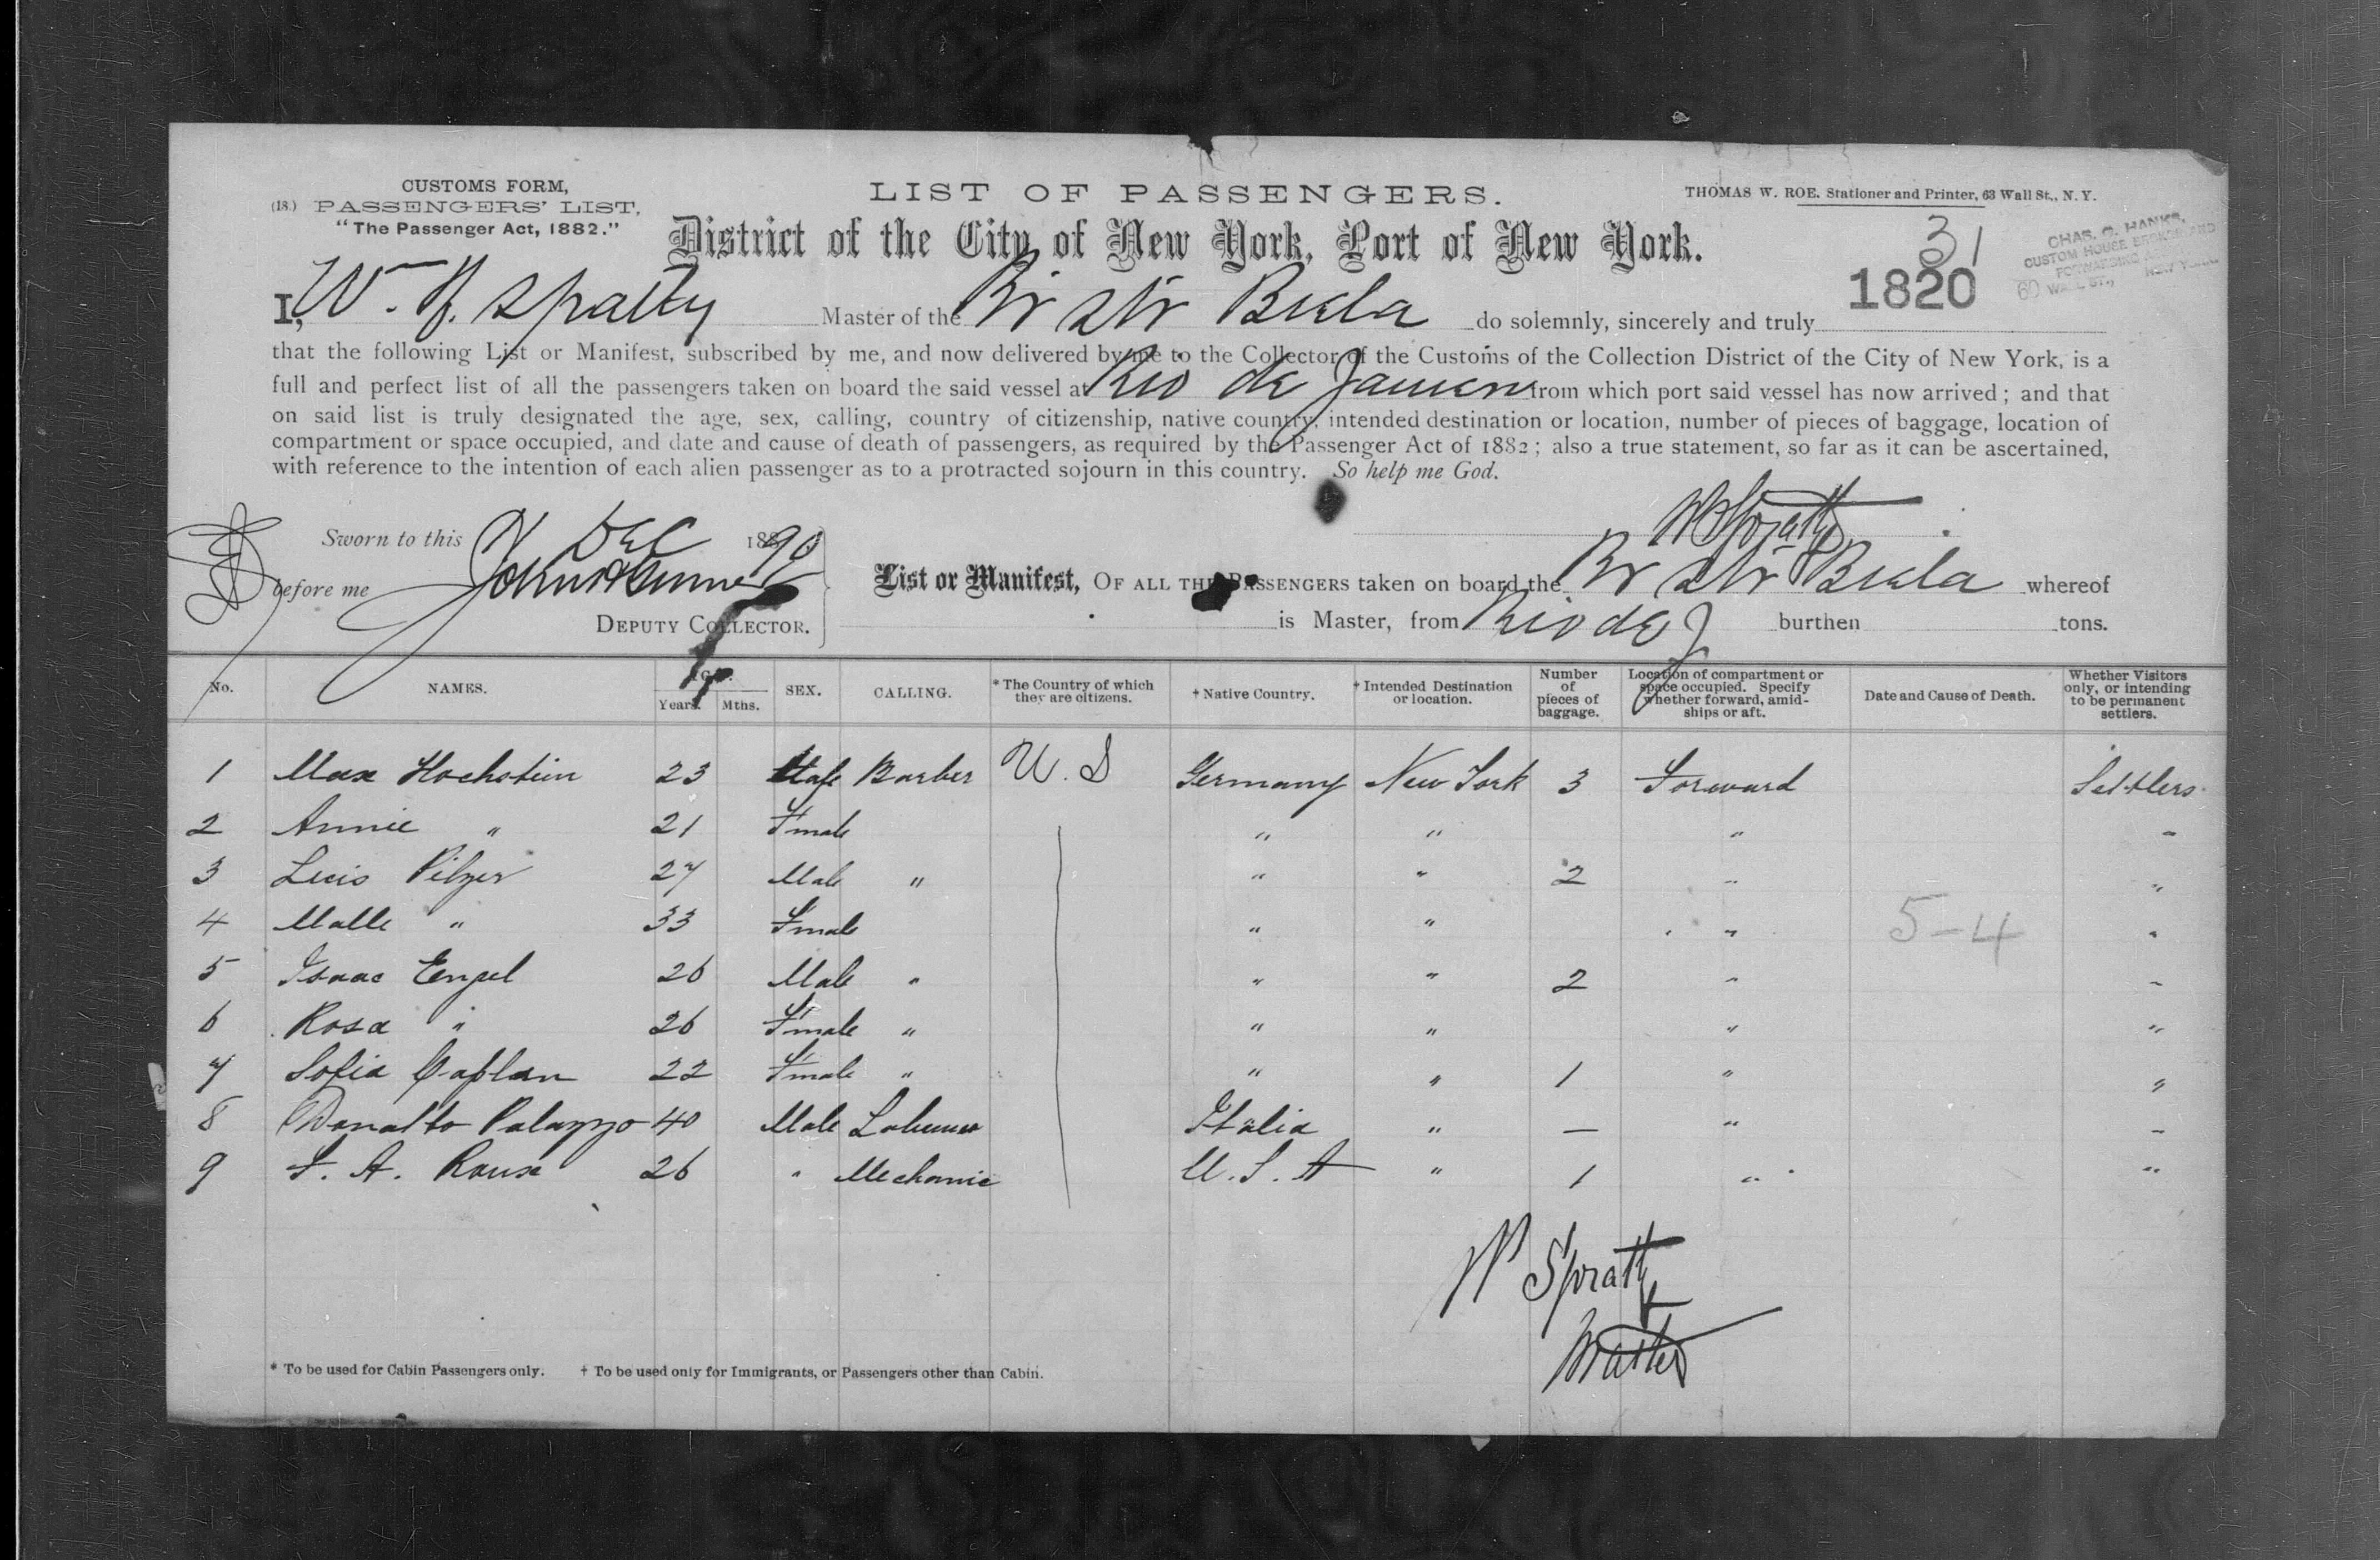 CUSTOMS FORM,
(18.) PASSENGERS' LIST,
"The Passenger Act, 1882."
LIST OF PASSENGERS.
THOMAS W. ROE. Stationer and Printer, 63 Wall St., N. Y.
District of the City of New York, Port of New York.
31
1820
CHAS. Q. HANKS,
CUSTOM HOUSE BROKER AND
FORWARDING
60 WALL ST., NEW YORK
I, W. Spratly Master of the Br Str Biela do solemnly, sincerely and truly
that the following List or Manifest, subscribed by me, and now delivered by me to the Collector of the Customs of the Collection District of the City of New York, is a
full and perfect list of all the passengers taken on board the said vessel at Rio de Janeiro from which port said vessel has now arrived; and that
on said list is truly designated the age, sex, calling, country of citizenship, native country, intended destination or location, number of pieces of baggage, location of
compartment or space occupied, and date and cause of death of passengers, as required by the Passenger Act of 1882; also a true statement, so far as it can be ascertained,
with reference to the intention of each alien passenger as to a protracted sojourn in this country. So help me God.
W Spratly
Sworn to this Dec 1890
before me
DEPUTY COLLECTOR.
List or Manifest, OF ALL THE PASSENGERS taken on board the Br Str Biela whereof
is Master, from Rio de J burthen tons.
No. NAMES. AGE. Years. Mths. SEX. CALLING. * The Country of which they are citizens. † Native Country. † Intended Destination or location. Number of pieces of baggage. Location of compartment or space occupied. Specify whether forward, amidships or aft. Date and Cause of Death. Whether Visitors only, or intending to be permanent settlers.
1 Max Hochstein 23 Male Barber U.S Germany New York 3 Forward Settlers
2 Annie " 21 Fmale " " " "
3 Pilzer 27 Male " " " 2 " "
4 Malle " 33 Fmale " " " "
5 Isaac Engel 26 Male " " " 2 " "
6 Rosa " 26 Fmale " " " " "
7 Sofia Caplan 22 Fmale " " " 1 " "
8 Donatto Palazzo 40 Male Laburer Italia " — " "
9 F. A. Roux 26 " Mechanic U.S.A " 1 " "
5-4
W Spratly
Master
* To be used for Cabin Passengers only. † To be used only for Immigrants, or Passengers other than Cabin.